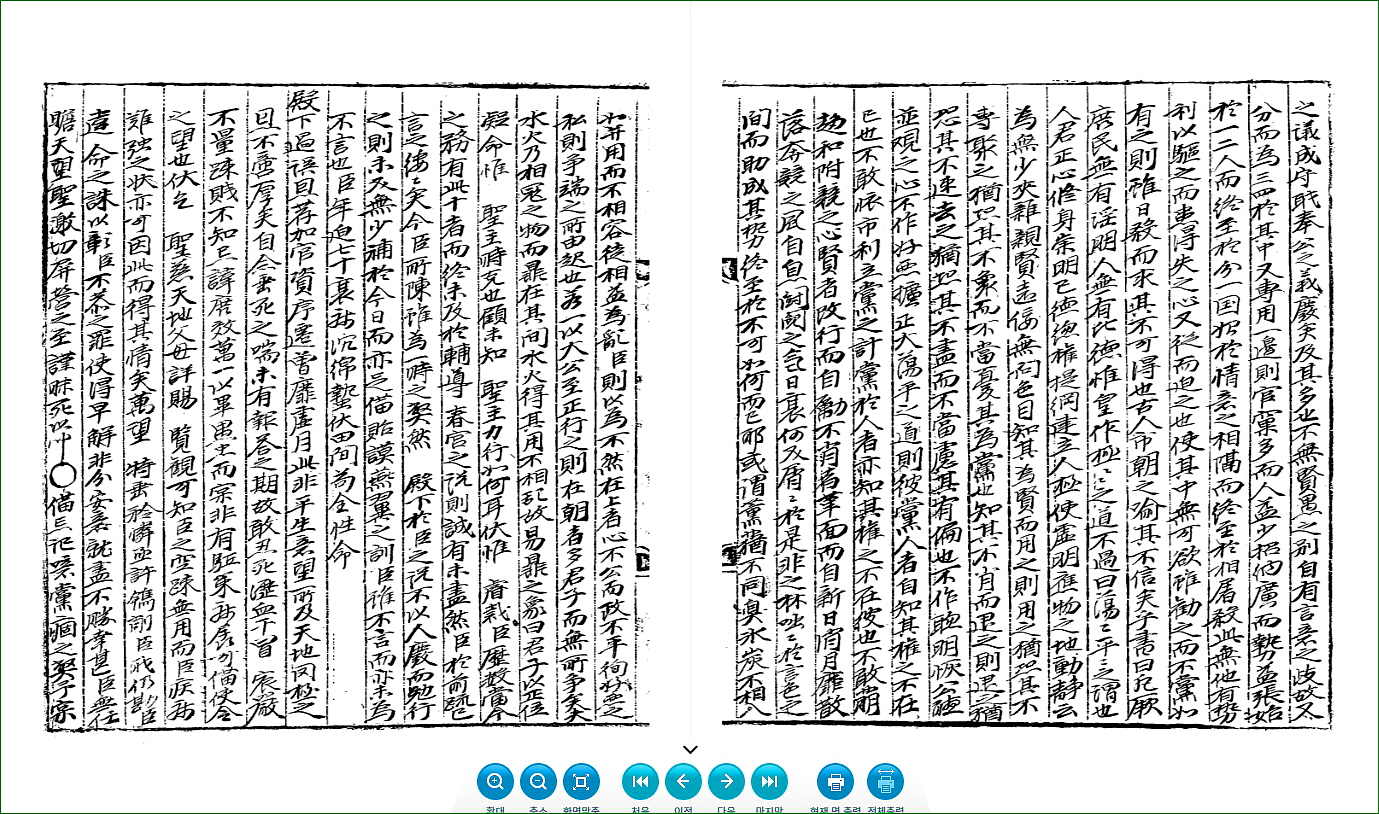 之議成守職奉公之義廢矣及其多也不無賢愚之別自有言意之歧故又
分而為三四於其中又專用一邊則官窠多而人益少招他廣而勢益張始
於一二人而終至於分一国始於情意之相隔而終至於相屠殺此無他有勢
利以驅之而患得失之心又從而迫之也使其中無可欲雖勸之而不黨如
有之則雖日殺而求其不可得也古人命朝之渝其不信夫子書曰凡厥
庶民無有淫明人無有比德惟皇作極之道不過曰蕩〻平〻之謂也
人君正心修身崇明己德總權提綱建立人極使虛明應物之地動靜云
為無少夾雜親賢遠佞無問色目知其為賢而用之則用之猶恐其不
專聚之猶恐其不象而不當憂其為黨也知其不肖而退之則退之猶
恐其不速去之猶恐其不盡而不當慮其有偏也不作聰明恢公
並觀之心不作好惡擴正大蕩平之道則彼黨人者自知其權之不在
己也不敢懷市利立黨之計黨於人者亦知其權之不在彼也不敢萌
趨和附競之心賢者改行而自勵不肖者革面而自新日消月靡散
落奔競之風自息鬪鬨之氣日衰何及屑〻於是非之林呶〻於言色之
間而助成其勢終至於不可如何而已耶或謂薰猶不同臭氷炭不相入
如并用而不相容徒相益為亂臣則以為不然在上者心不公而政不平徇於愛之
私則爭端之所由起也若一以大公至正行之則在朝者多君子而無所爭矣
水火乃相克之物而鼎在其間水火得其用不相犯故易鼎之象曰君子以正位
凝命惟 聖主時克也顧未知 聖主力行如何耳伏惟 睿裁臣歷數當今
之務有此十者而終未及於輔導 春官之說則誠有未盡然臣於前疏已
言之縷〻矣今臣所陳雖為一時之獘然 殿下於臣之說不以人廢而勉行
之則未及無少補於今日而亦足備貽謨燕翼之訓臣雖不言而亦未為
不言也臣年迫七十衰病沉綿蟄伏田間苟全性命
殿下過誤回荐加官資序遷曾靡虛月此非平生意望所及天地罔極之
恩不啻厚矣自今垂死之喘未有報答之期故敢刃死瀝血下首 宸嚴
不量疎賤不知忌諱庶效萬一以畢愚忠而宗非有駈策病居可備使令
之望也伏乞 聖慈天地父母詳賜 覽觀可知臣之空疎無用而臣疾病
難強之狀亦可因此而得其情矣萬望 特垂矜憐亟許鐫削臣職仍勘臣
違命之誅以彰臣不恭之罪使得早解非分安意就盡不勝幸甚臣無任
瞻天望聖激切屏營之至謹昧死以 ○備忘記噫黨痼之獘予宗
확대 축소 화면맞춤 처음 이전 다음 마지막 현재 면 출력 전체출력